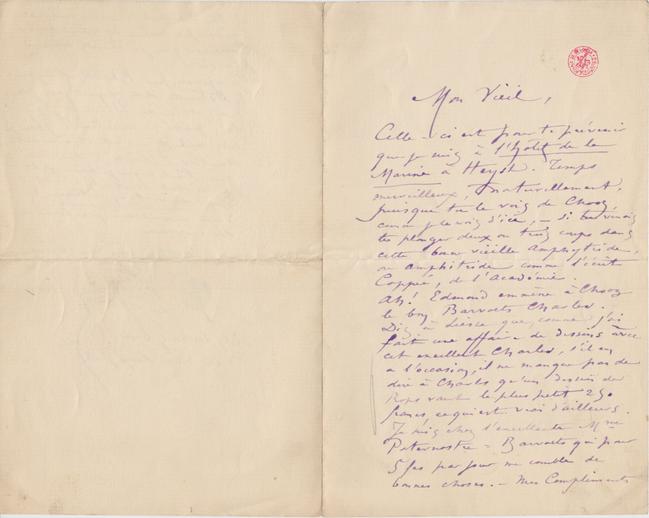 Mon Vieil,
Celle-ci est pour te prévenir
que je suis à l'Hôtel de la
Marine à Heyst. Temps
merveilleux, naturellement,
puisque tu le vois de Chooz
comme je le vois d'ici, – si tu venais
te plonger deux ou trois coups dans
cette bonne vieille Amphytride,
ou amphitride comme l'écrit
Coppée, de l'Académie.
Ah! Edmond emmène à Chooz
le bon Barvoets Charles.
Dis à Liesse que, comme j'ai
fait une affaire de dessins avec
cet excellent Charles, s'il en
a l'occasion, il ne manque pas de
dire à Charles qu'un dessin de
Rops vaut le plus petit 250
francs ce qui est vrai d'ailleurs.
Je suis chez l'excellente Mme
Paternostre-Barvoets qui pour
5 frs par jour me comble de
bonnes choses. – Mes Compliments